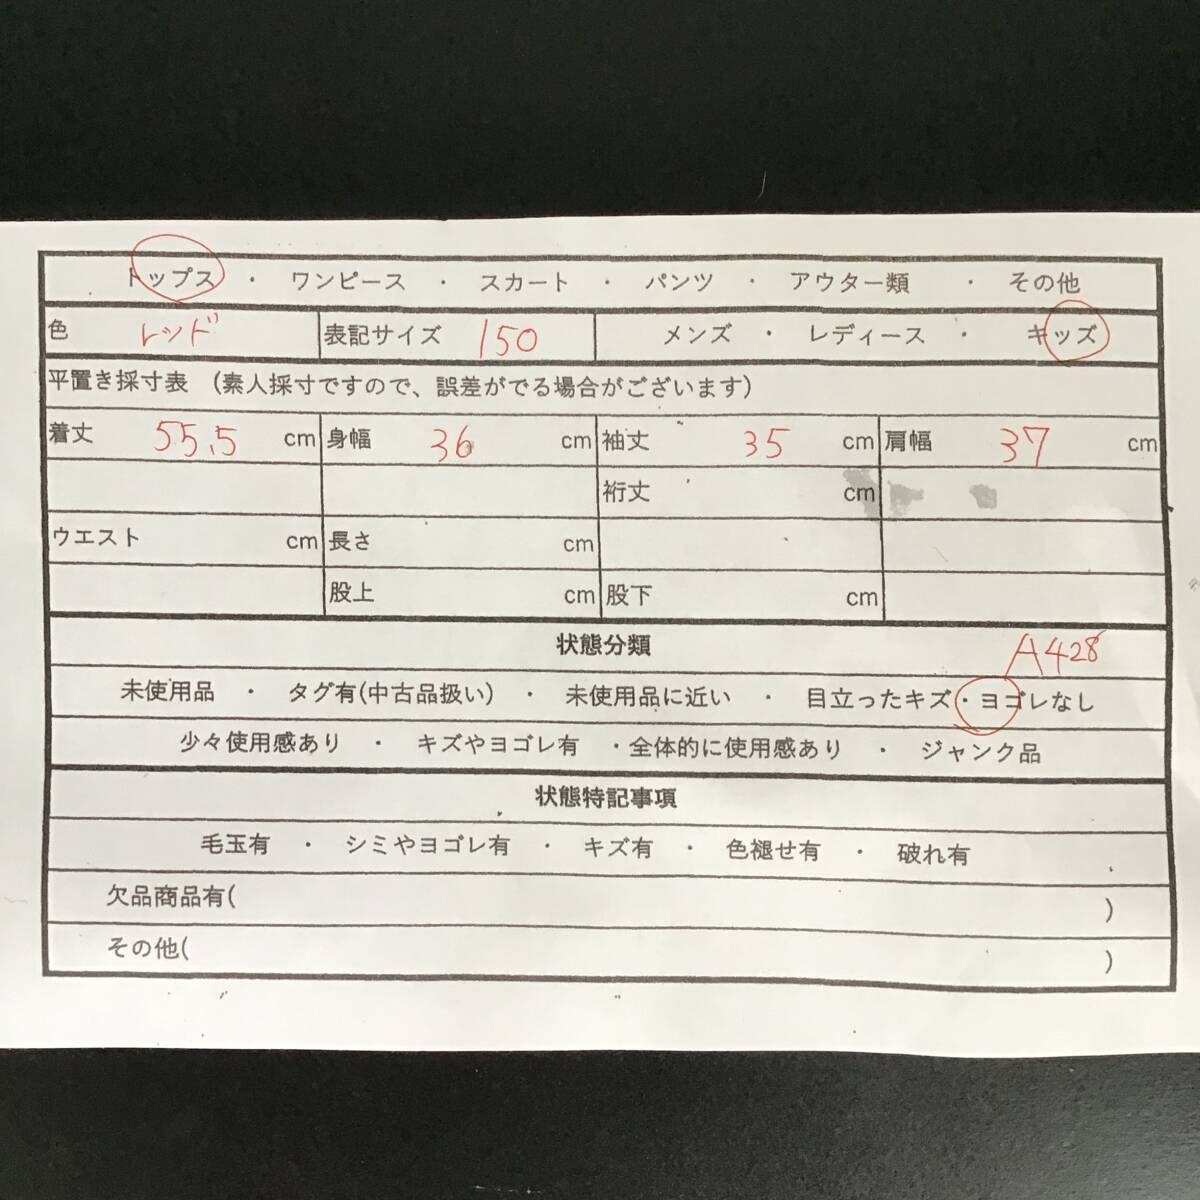 トップス ・ ワンピース ・ スカート ・ パンツ ・ アウター類 ・ その他
色 レッド 表記サイズ 150 メンズ ・ レディース ・ キッズ
平置き採寸表 (素人採寸ですので、誤差がでる場合がございます)
着丈 55.5 cm 身幅 36 cm 袖丈 35 cm 肩幅 37 cm
裄丈 cm
ウエスト cm 長さ cm
股上 cm 股下 cm
状態分類 A428
未使用品 ・ タグ有(中古品扱い) ・ 未使用品に近い ・ 目立ったキズ・ヨゴレなし
少々使用感あり ・ キズやヨゴレ有 ・全体的に使用感あり ・ ジャンク品
状態特記事項
毛玉有 ・ シミやヨゴレ有 ・ キズ有 ・ 色褪せ有 ・ 破れ有
欠品商品有( )
その他( )